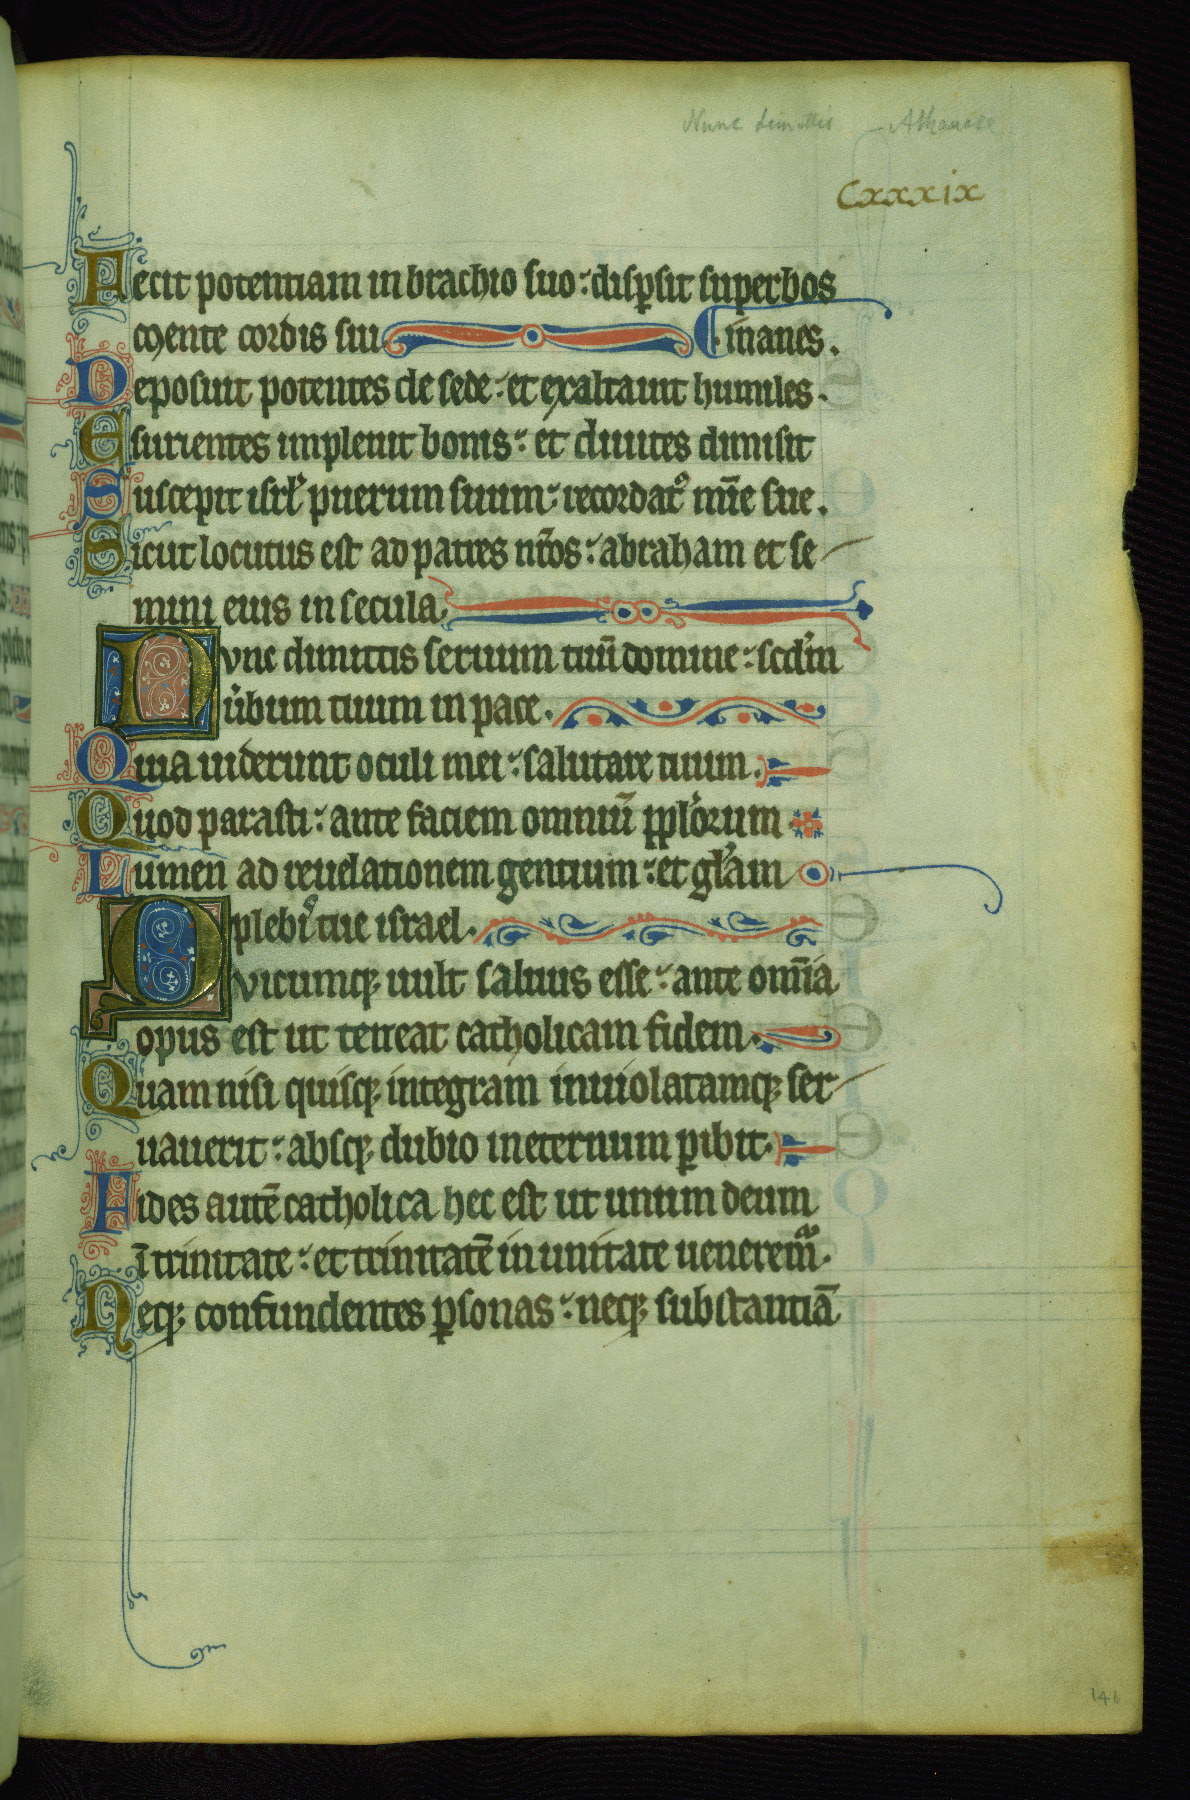 Nunc dimittis – Athanase
Cxxxix
Fecit potentiam in brachio suo: disp̱sit superbos
mente cordis sui inanes.
Deposuit potentes de sede: et exaltauit humiles.
Esurientes impleuit bonis: et diuites dimisit
Suscepit isrl̓ puerum suum: recordat᷒ mīe sue.
Sicut locutus est ad patres nr̄os: abraham et se
mini eius in secula.
Nvnc dimittis seruum tuū domine: scdm̓
u̓bum tuum in pace.
Quia uiderunt oculi mei: salutare tuum.
Quod parasti: ante faciem omniū ppl̓orum
Lumen ad reuelationem gentium: et gl̓am
plebis tue israel.
Qvicumq; uult saluus esse: ante om̄ia
opus est ut teneat catholicam fidem.
Quam nisi quisq; integram inuiolatamq; ser
uauerit: absq; dubio in eternum p̱ibit.
Fides autē catholica hec est ut unum deum
ī trinitate: et trinitatē in unitate ueneremᷓ.
Neq; confundentes p̱sonas: neq; substantiā
146